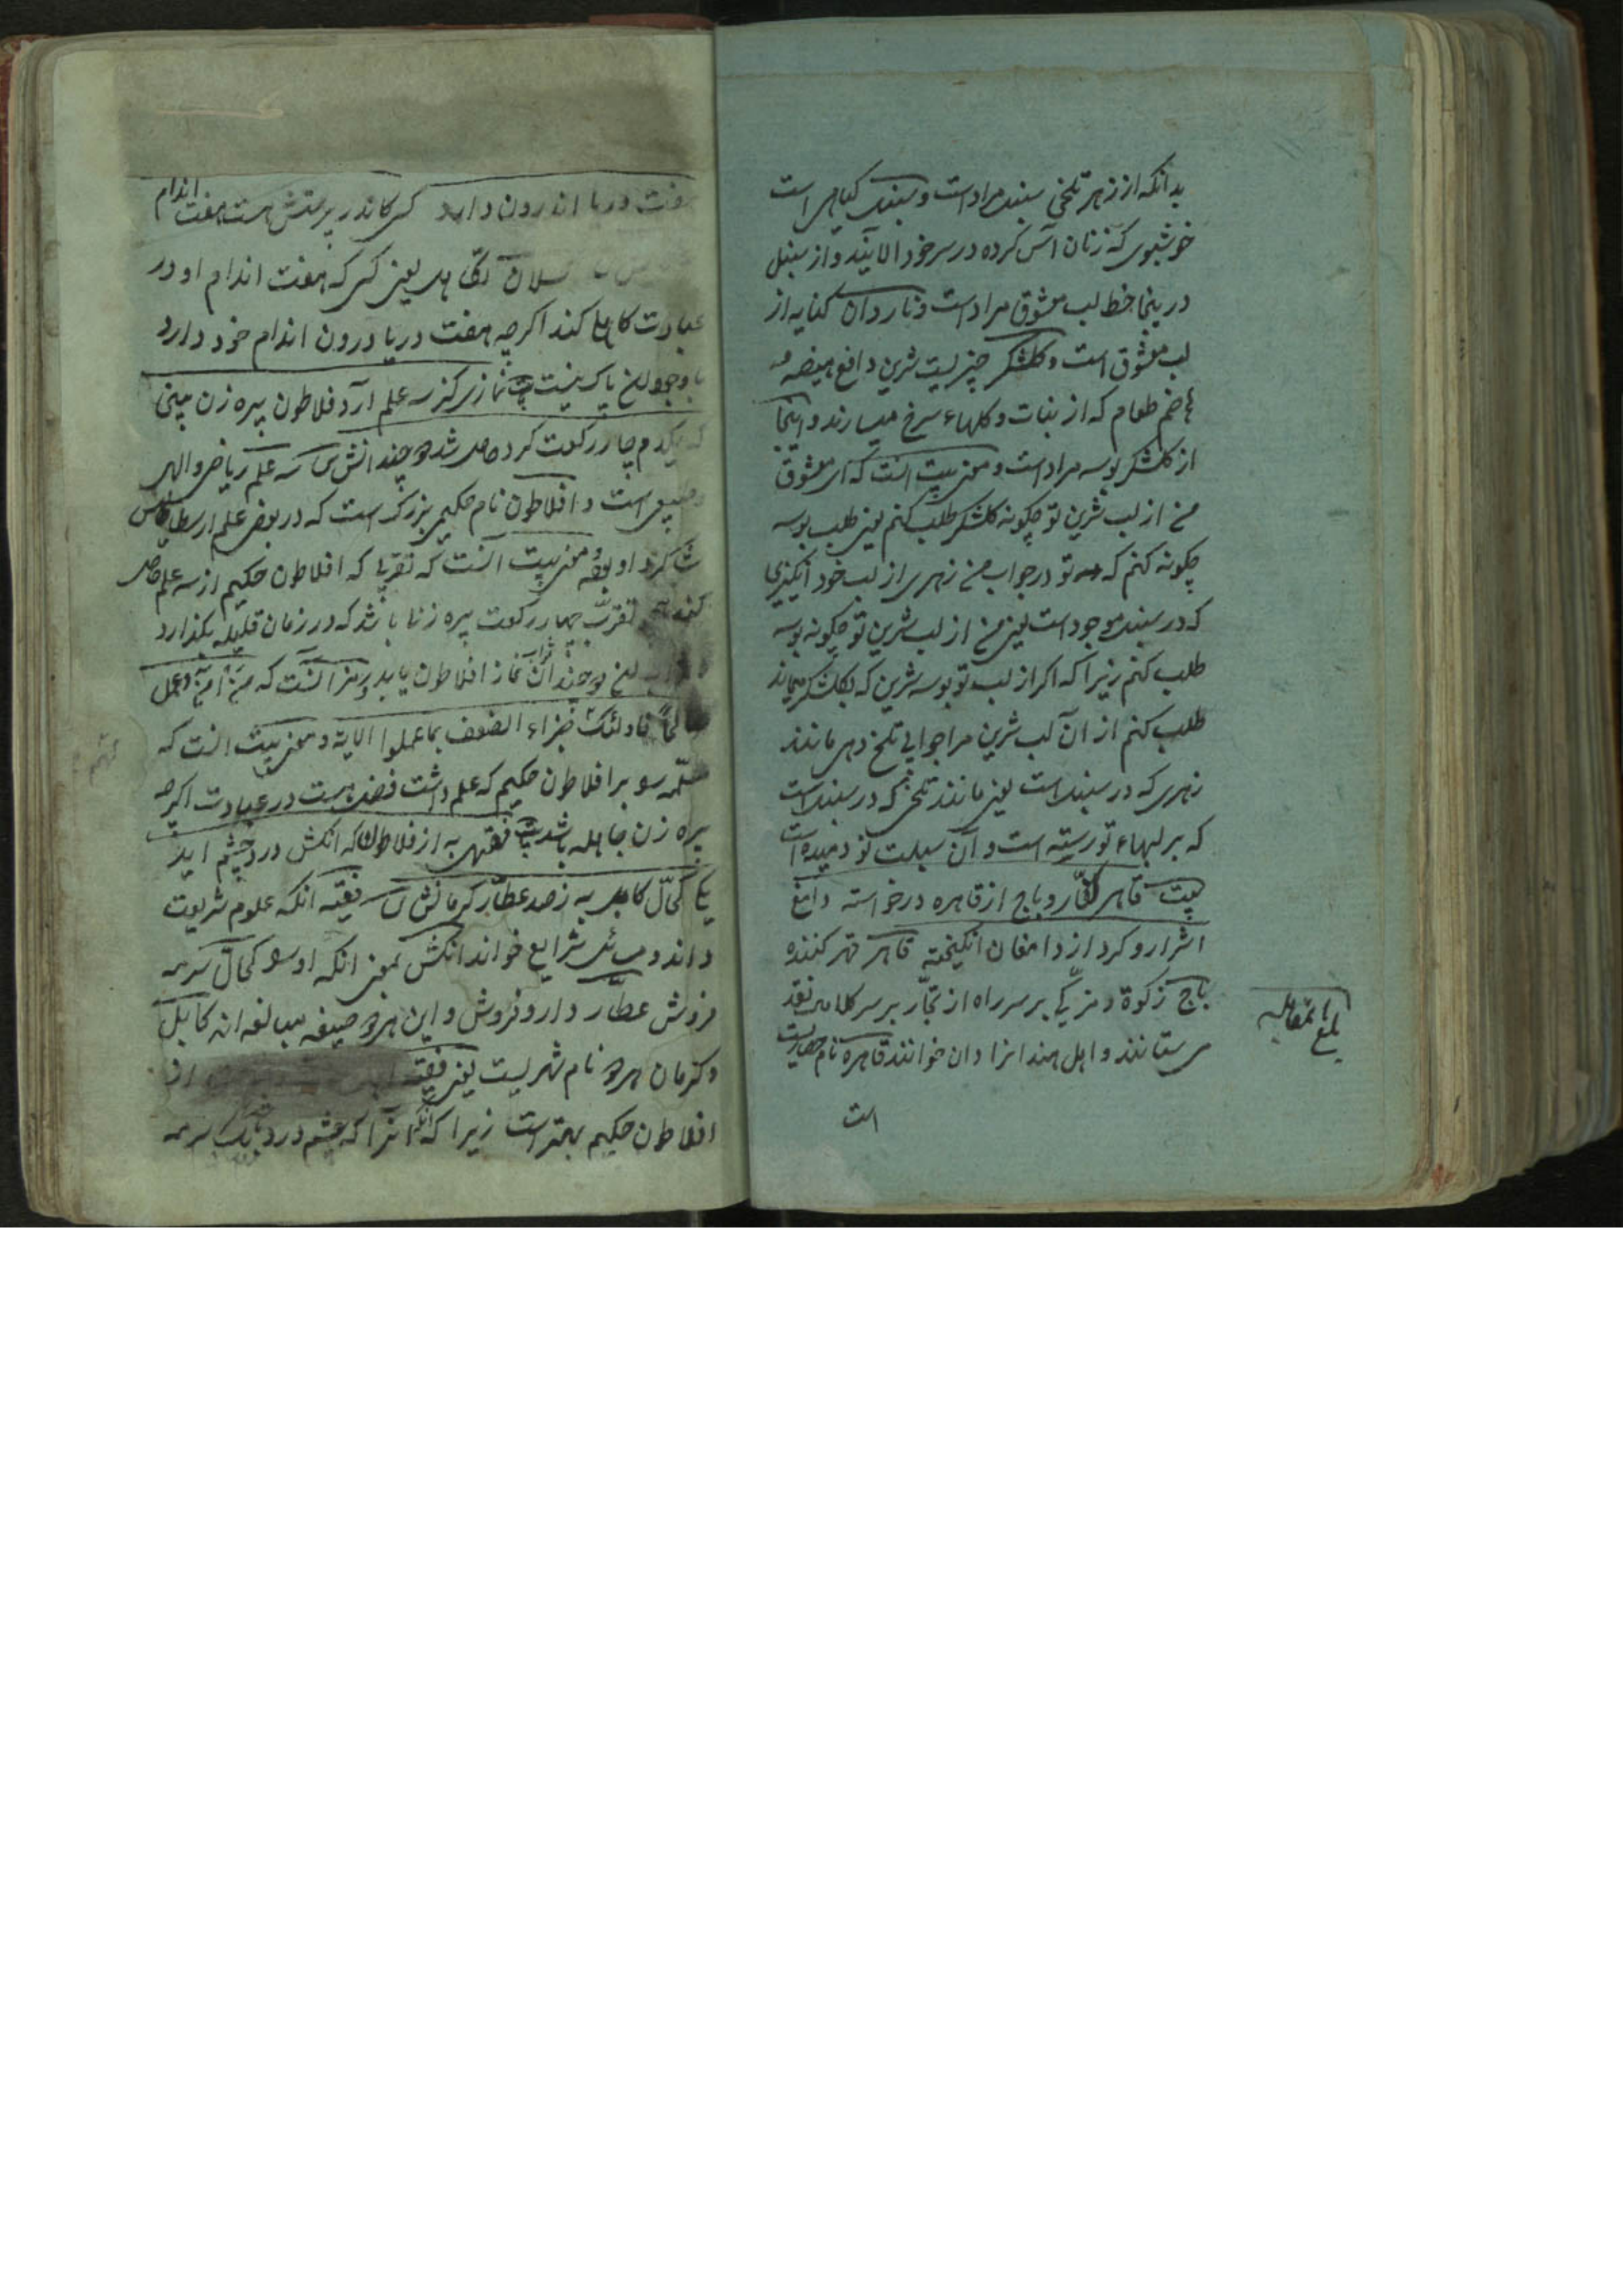 بدانکه از زهر تلخی سنبل مراد است و سنبل کیاهی است
خوشبوی که زنان آس کرده در سر خود الایند و از سنبل
درینجا خط لب معشوق مراد است و ناردان کنایه از
لب معشوق است و کلشکر چیزیست شرین دافع هیضه
هاضم طعام که از نبات و کلهاء سرخ میسازند و اینجا
از کلشکر بوسه مراد است و معنی بیت انست که ای معشوق
من از لب شرین تو چکونه کلشکر طلب کنم یعنی طلب بوسه
چکونه کنم که تو در جواب من زهری از لب خود انکیزی
که در سنبل موجود است یعنی من از لب شرین تو چکونه بوسه
طلب کنم زیرا که اکر از لب تو بوسه شرین که بکلشکر میماند
طلب کنم از ان لب شرین مرا جوابی تلخ دهی مانند
زهری که در سنبل است یعنی مانند تلخی که در سنبل است
که بر لبهاء تو رسته است و آن سبلت تو دمیده است
بیت قاهر کفّار و باج از قاهره درخواسته دامغ
اشرار و کرد از دامغان انکیخته قاهر قهر کننده
باج زکوة و مزیکی بر سر راه از تجّار بر سر کلا نقد
می ستانند و اهل هند انرا دان خوانند قاهره نام حصاریست
بلغ المقابله
است
هفت دریا اندرون دارد کسی کاندر پرستش هست هفت اندام
کسلان کاهل یعنی کسی که هفت اندام او در
عبادت کاهلی کند اکرچه هفت دریا درون اندام خود دارد
با وجود پاک نیست بیت نمازی کز سه علم آرد فلاطون پیره زن بینی
که یکدم چار رکعت کرد حاصل شد دو چندانش سه علم ریاضی و الهی
و طبیعی است و افلاطون نام حکیمی بزرک است که در بعض علم ارسطاطالیس
شاکرد او بود و معنی بیت انست که تقربی که افلاطون حکیم از سه علم حاصل
کند تقرّب چهار رکعت پیره زنی باشد که در زمان قلیله بکذارد
دو چندان ثواب نماز افلاطون یابد و رمز انست که من آمن و عمل
صالحاً فاولئک جزاء الضعف بما عملوا الایة و معنی بیت انست که
مسلّمه را بر افلاطون حکیم که علم داشت فضل هست در عبادت اکرچه
پیره زن جاهله باشد بیت فقیهی به از فلاطون که انکش درد چشم اید
یکی کحّال کابل به ز صد عطّار کرمانش فقیه انکه علوم شریعت
داند و مسائل شرایع خواند انکش بمعنی انکه او را کحّال سرمه
فروش عطّار داروفروش و این هر دو صیغه مبالغه اند کابل
و کرمان هر دو نام شهریست یعنی فقیه از
افلاطون حکیم بهتر است زیرا که انرا که چشم درد یک سرمه